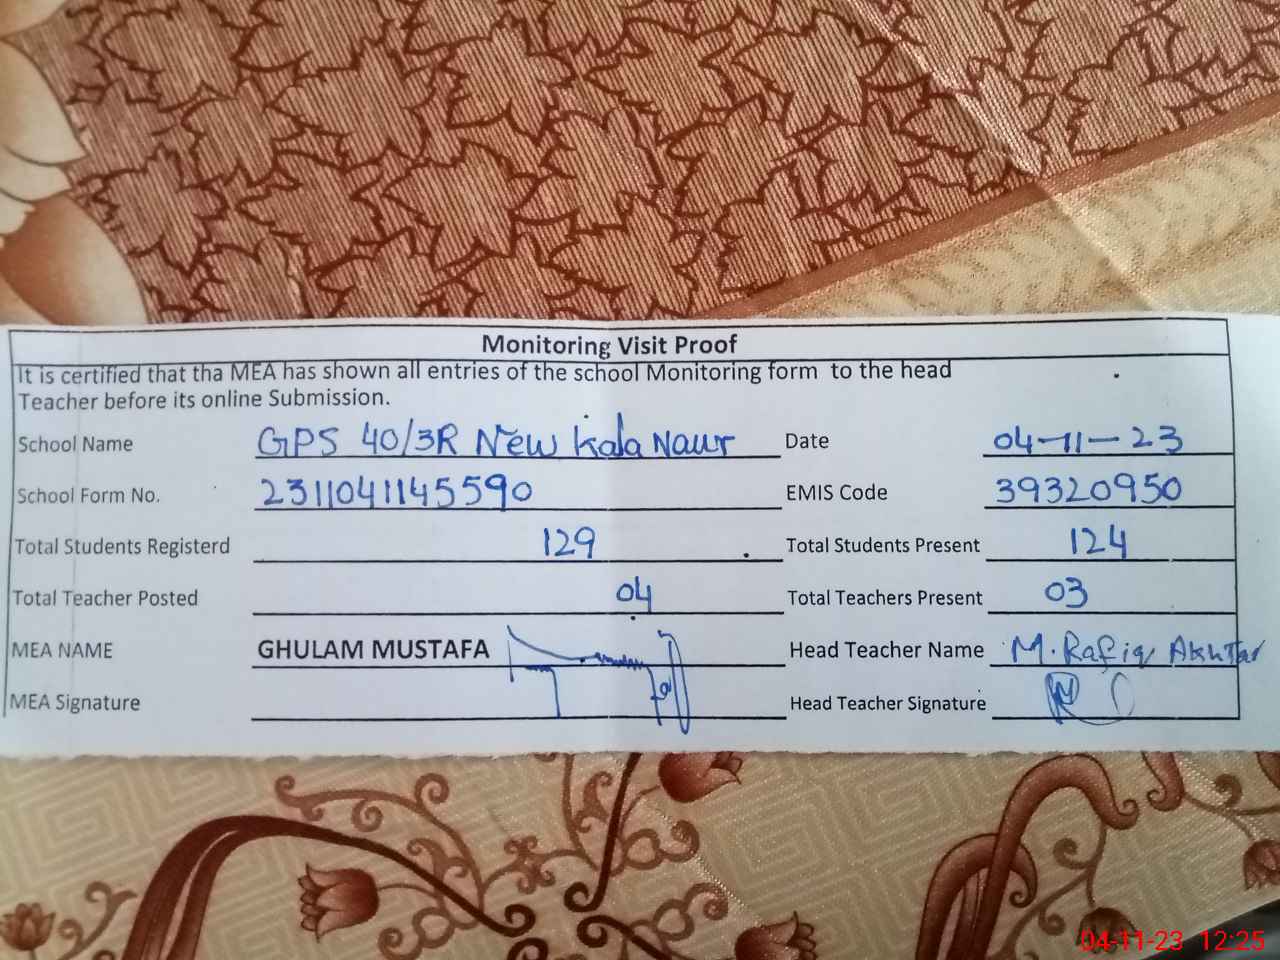 Monitoring Visit Proof
It is certified that tha MEA has shown all entries of the school Monitoring form to the head
Teacher before its online Submission.
School Name GPS 40/3R New Kala Naur Date 04-11-23
School Form No. 2311041145590 EMIS Code 39320950
Total Students Registerd 129 Total Students Present 124
Total Teacher Posted 04 Total Teachers Present 03
MEA NAME GHULAM MUSTAFA Head Teacher Name M. Rafiq Akhtar
MEA Signature Head Teacher Signature
04-11-23 12:25